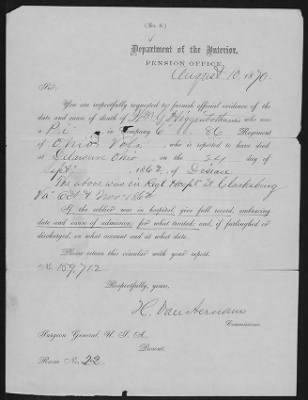 (No. 6.)
Department of the Interior,
PENSION OFFICE,
August 10, 1870.
Sir:
You are respectfully requested to furnish official evidence of the
date and cause of death of Wm G Higginbotham who was
a Pri in Company C 86 Regiment
of Ohio Vols who is reported to have died
at Delaware Ohio on the 24 day of
Sept 1862, of Disease
The above was in Regt Hospt at Clarksburg
Va Oct & Nov 1862
If the soldier was in hospital, give full record, embracing
date and cause of admission, for what treated; and, if furloughed or
discharged, on what account and at what date.
Please return this circular with your report.
No. 159,712
Respectfully, yours,
H. Van Aernam
Commissioner.
Surgeon General, U. S. A.
Present.
Room No. 22